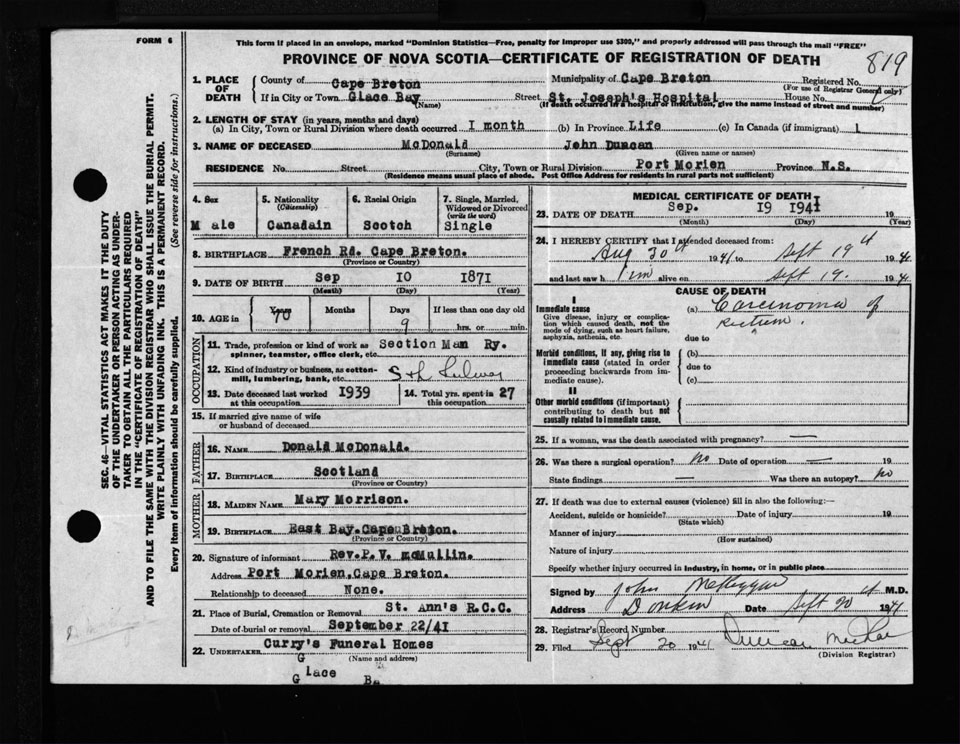 FORM 6
This form if placed in an envelope, marked "Dominion Statistics—Free, penalty for improper use $300," and properly addressed will pass through the mail "FREE"
PROVINCE OF NOVA SCOTIA—CERTIFICATE OF REGISTRATION OF DEATH
819
1. PLACE OF DEATH
County of Cape Breton Municipality of Cape Breton Registered No.
(For use of Registrar General only)
If in City or Town Glace Bay (Name) Street St. Joseph's Hospital House No.
(If death occurred in a hospital or institution, give the name instead of street and number)
2. LENGTH OF STAY (in years, months and days)
(a) In City, Town or Rural Division where death occurred I month (b) In Province Life (c) In Canada (if immigrant)
3. NAME OF DECEASED McDonald John Duncan
(Surname) (Given name or names)
RESIDENCE No. Street City, Town or Rural Division Port Morien Province N.S.
(Residence means usual place of abode. Post Office Address for residents in rural parts not sufficient)
4. Sex
M ale
5. Nationality (Citizenship)
Canadain
6. Racial Origin
Scotch
7. Single, Married, Widowed or Divorced (write the word)
Single
8. BIRTHPLACE French Rd. Cape Breton.
(Province or Country)
9. DATE OF BIRTH Sep 10 1871
(Month) (Day) (Year)
10. AGE in Years Months Days If less than one day old
70 9 hrs. or min.
OCCUPATION
11. Trade, profession or kind of work as spinner, teamster, office clerk, etc. Section Man Ry.
12. Kind of industry or business, as cotton-mill, lumbering, bank, etc. S & L
13. Date deceased last worked at this occupation 1939
14. Total yrs. spent in this occupation 27
15. If married give name of wife or husband of deceased
FATHER
16. NAME Donald McDonald.
17. BIRTHPLACE Scotland
(Province or Country)
MOTHER
18. MAIDEN NAME Mary Morrison.
19. BIRTHPLACE East Bay. Cape Breton.
(Province or Country)
20. Signature of informant Rev. P. V. mcMullin.
Address Port Morien, Cape Breton.
Relationship to deceased None.
21. Place of Burial, Cremation or Removal St. Ann's R.C.C.
Date of burial or removal September 22/41
22. UNDERTAKER Curry's Funeral Homes
(Name and address)
G lace Ba
MEDICAL CERTIFICATE OF DEATH
23. DATE OF DEATH Sep. 19 1941 19
(Month) (Day) (Year)
24. I HEREBY CERTIFY that I attended deceased from:
Aug 30th 1941 to Sept 19th 1941
and last saw h im alive on Sept 19. 1941
CAUSE OF DEATH
I
Immediate cause
Give disease, injury or complication which caused death, not the mode of dying, such as heart failure, asphyxia, asthenia, etc.
(a) Carcinoma of rectum.
due to
Morbid conditions, if any, giving rise to immediate cause (stated in order proceeding backwards from immediate cause).
(b)
due to
(c)
II
Other morbid conditions (if important) contributing to death but not causally related to immediate cause.
25. If a woman, was the death associated with pregnancy? —
26. Was there a surgical operation? No Date of operation — 19
State findings — Was there an autopsy? No
27. If death was due to external causes (violence) fill in also the following:—
Accident, suicide or homicide? Date of injury 19
(State which)
Manner of injury
(How sustained)
Nature of injury
Specify whether injury occurred in industry, in home, or in public place
Signed by John M.D.
Address Donkin Date Sept 20th 1941
28. Registrar's Record Number
29. Filed Sept 20 1941 Duncan MacRae
(Division Registrar)
SEC. 46—VITAL STATISTICS ACT MAKES IT THE DUTY
OF THE UNDERTAKER OR PERSON ACTING AS UNDER-
TAKER TO OBTAIN ALL THE PARTICULARS REQUIRED
IN THE "CERTIFICATE OF REGISTRATION OF DEATH"
AND TO FILE THE SAME WITH THE DIVISION REGISTRAR WHO SHALL ISSUE THE BURIAL PERMIT.
WRITE PLAINLY WITH UNFADING INK. THIS IS A PERMANENT RECORD.
Every item of information should be carefully supplied. (See reverse side for instructions.)